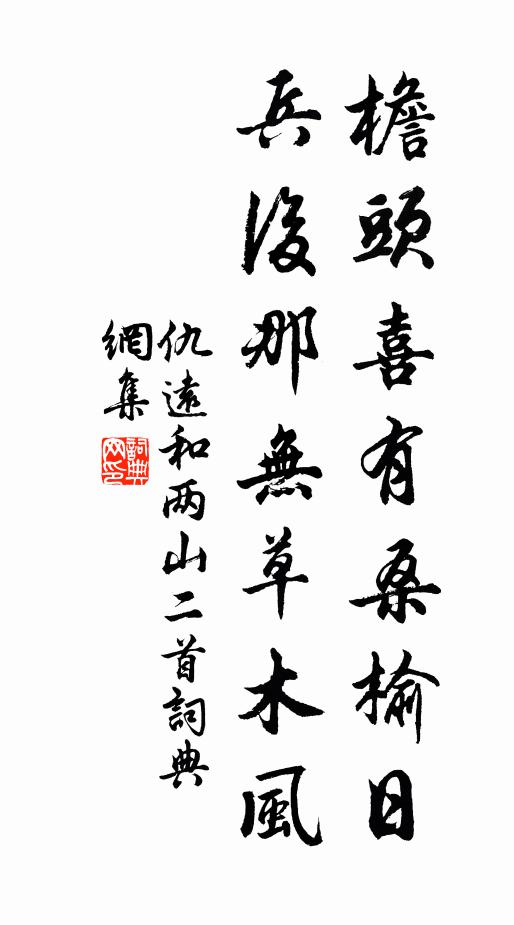 檐頭喜有桑榆日
兵後那無草木風
仇遠和两山二首詞典
網集
詞典網印